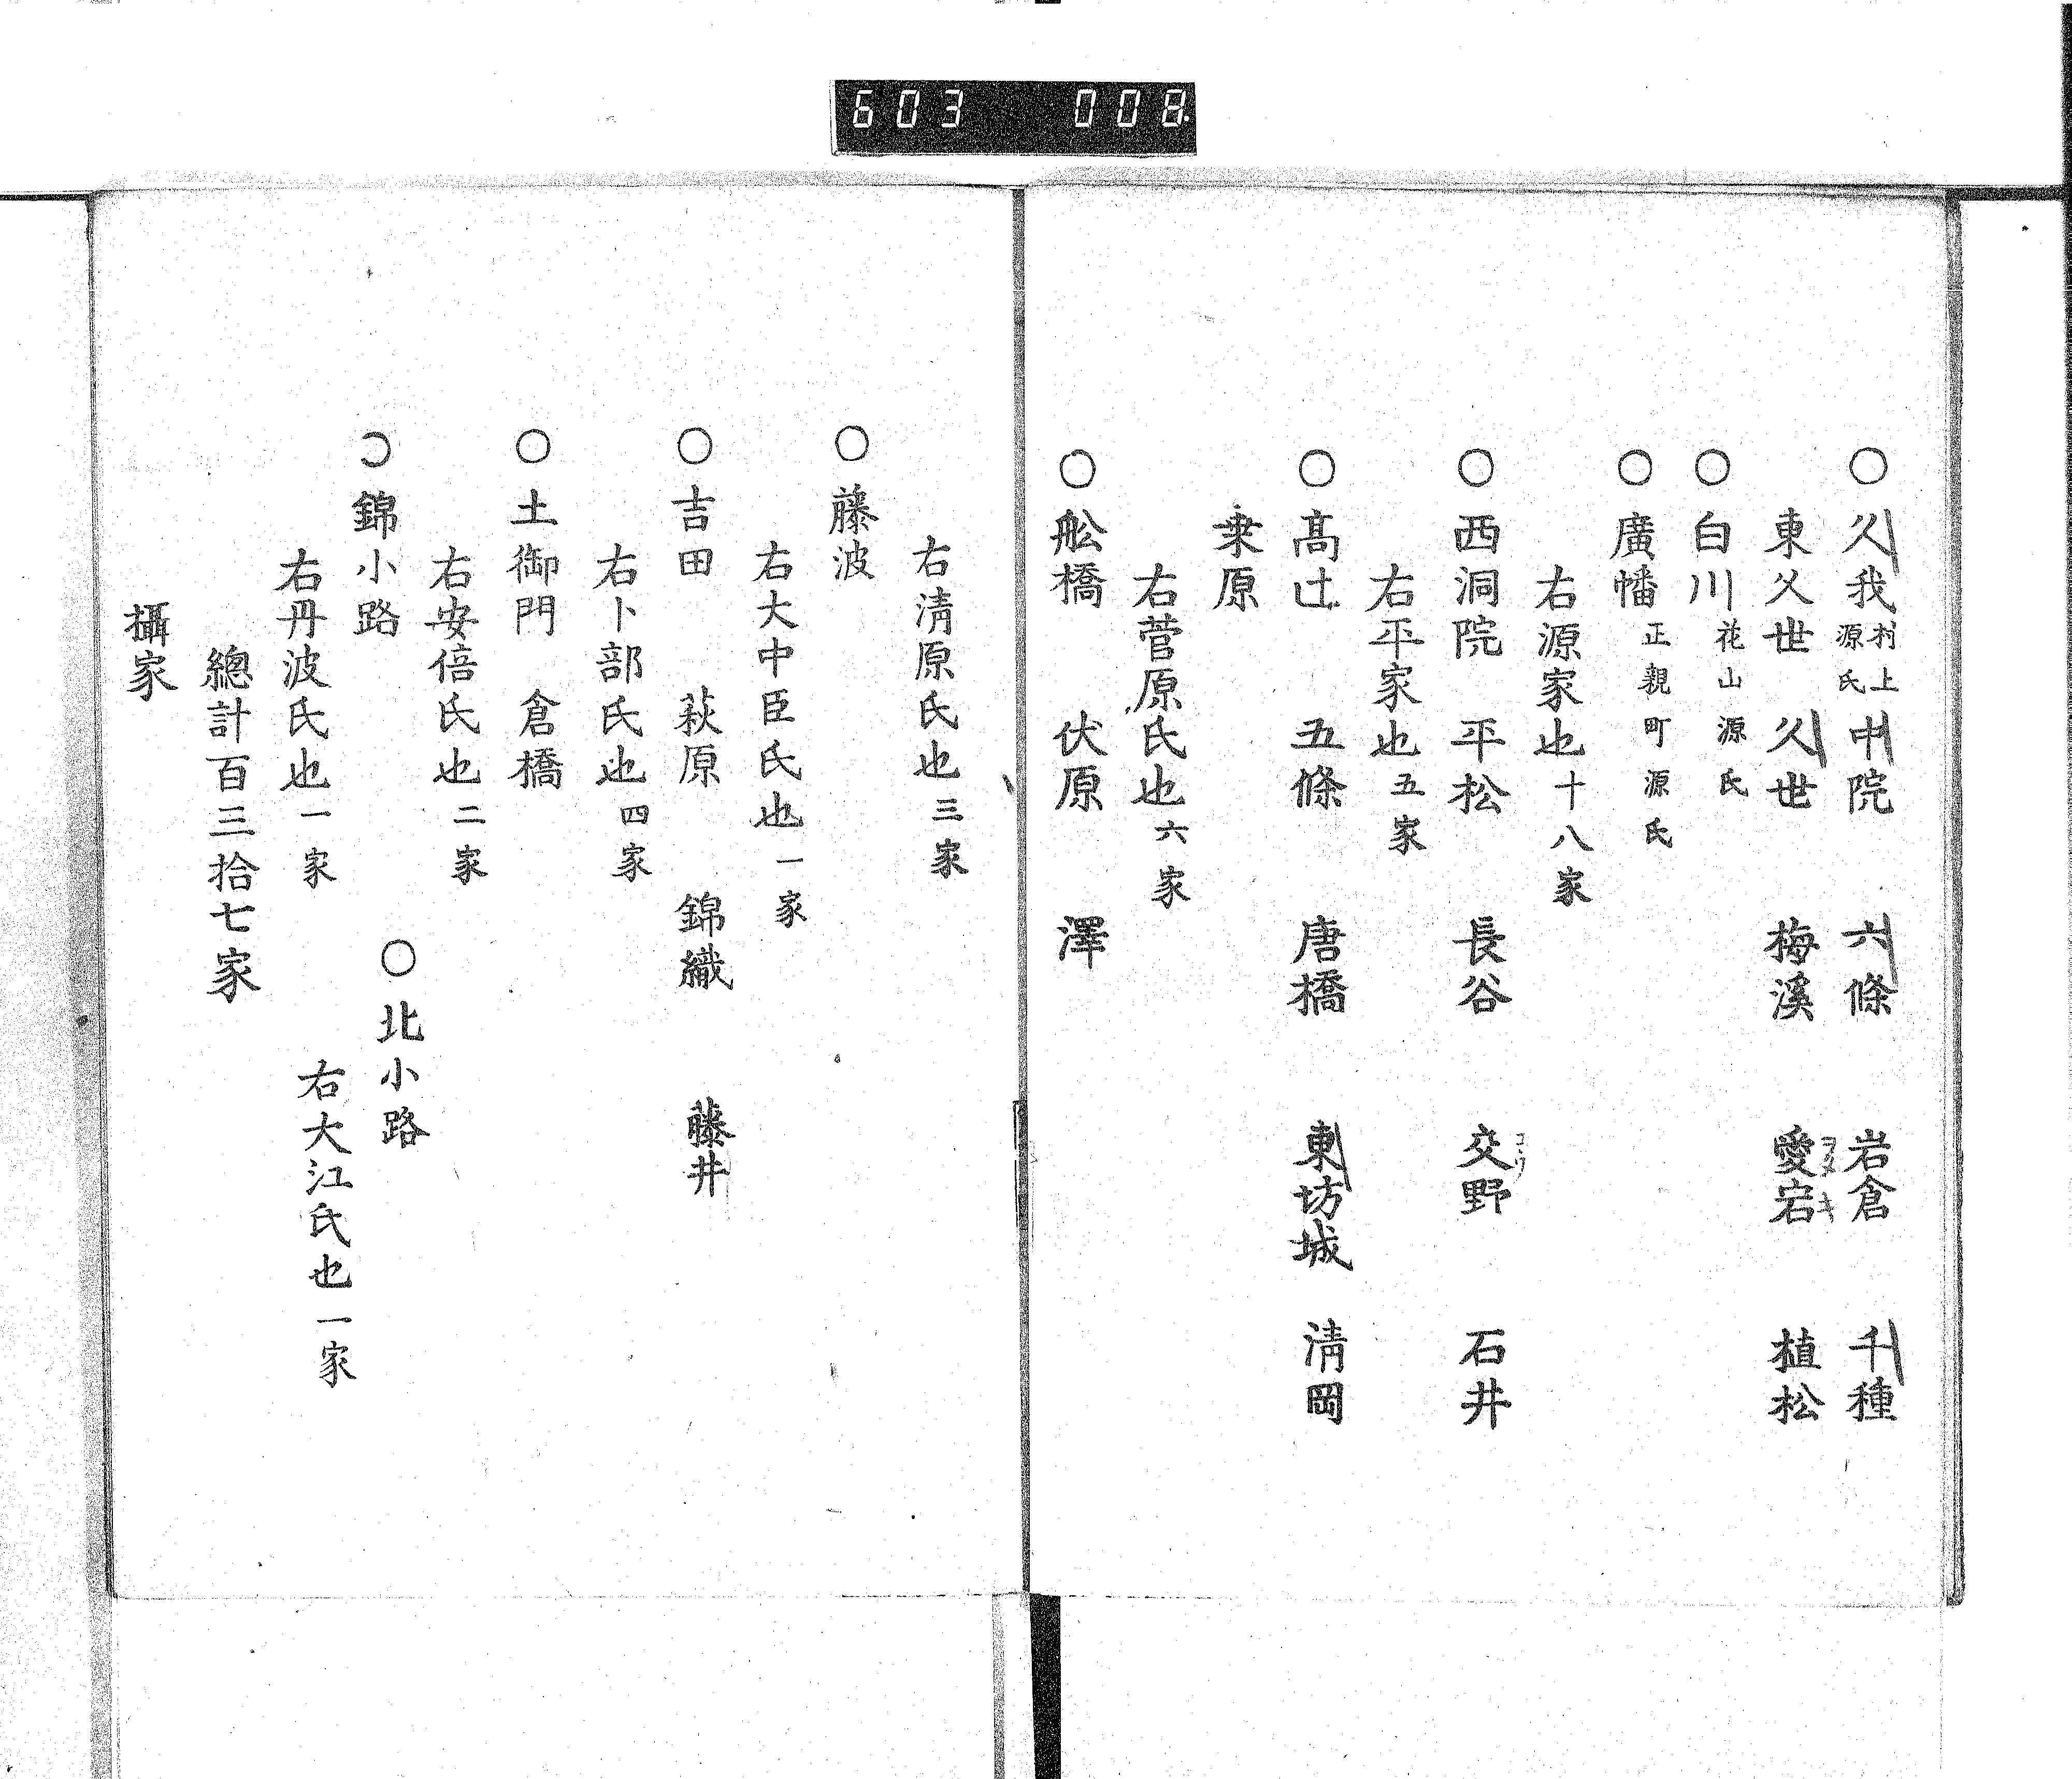 603 008
〇久我村上源氏 中院 六條 岩倉 千種
東久世 久世 梅溪 愛宕 植松
〇白川花山源氏
〇廣幡正親町源氏
右源家也十八家
〇西洞院 平松 長谷 交野 石井
右平家也五家
〇髙辻 五條 唐橋 東坊城 清岡
桒原
右菅原氏也六家
〇舩橋 伏原 澤
右清原氏也三家
〇藤波
右大中臣氏也一家
〇吉田 萩原 錦織 藤井
右卜部氏也四家
〇土御門 倉橋
右安倍氏也二家
〇錦小路 〇北小路
右丹波氏也一家 右大江氏也一家
總計百三拾七家
攝家